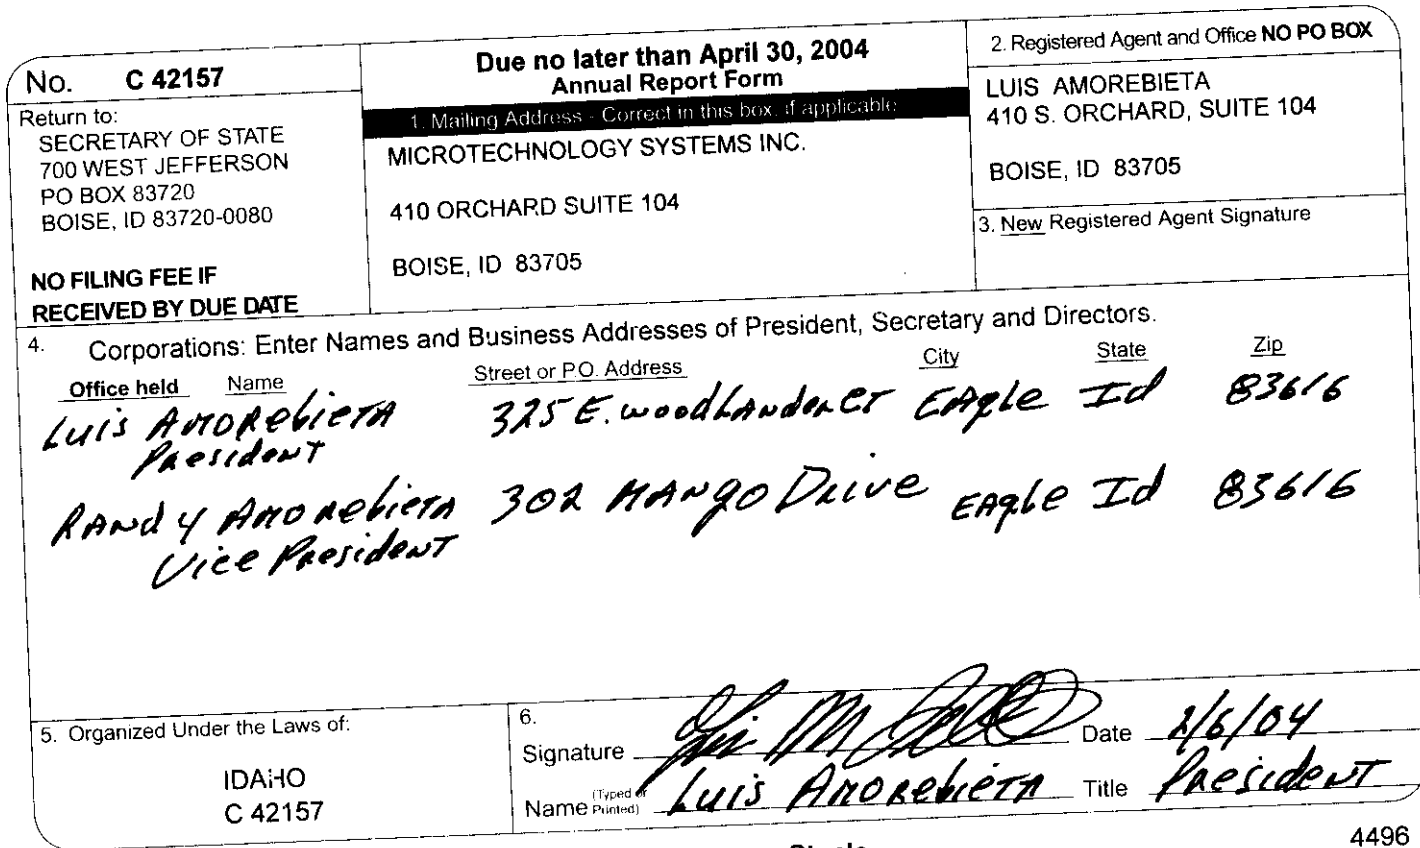 No. C 42157
Return to:
SECRETARY OF STATE
700 WEST JEFFERSON
PO BOX 83720
BOISE, ID 83720-0080
NO FILING FEE IF
RECEIVED BY DUE DATE
Due no later than April 30, 2004
Annual Report Form
1. Mailing Address - Correct in this box, if applicable
MICROTECHNOLOGY SYSTEMS INC.
410 ORCHARD SUITE 104
BOISE, ID 83705
2. Registered Agent and Office NO PO BOX
LUIS AMOREBIETA
410 S. ORCHARD, SUITE 104
BOISE, ID 83705
3. New Registered Agent Signature
4. Corporations: Enter Names and Business Addresses of President, Secretary and Directors.
Office held Name Street or P.O. Address City State Zip
Luis Amorebieta 325 E. Woodlander Ct Eagle Id 83616
President
Randy Amorebieta 302 Mango Drive Eagle Id 83616
Vice President
5. Organized Under the Laws of:
IDAHO
C 42157
6.
Signature Date 2/6/04
Name (Typed or Printed) Luis Amorebieta Title President
4496